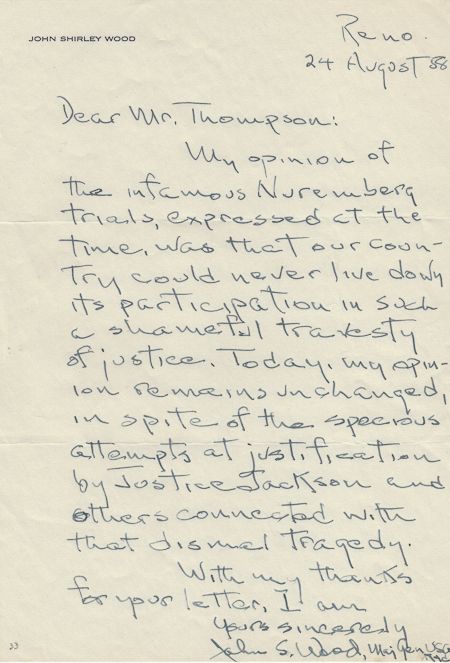 JOHN SHIRLEY WOOD
Reno.
24 August 58
Dear Mr. Thompson:
My opinion of
the infamous Nuremberg
trials, expressed at the
time, was that our coun-
try could never live down
its participation in such
a shameful travesty
of justice. Today, my opin-
ion remains unchanged,
in spite of the specious
attempts at justification
by Justice Jackson and
others connected with
that dismal tragedy.
With my thanks
for your letter, I am
Yours sincerely
John S. Wood, Maj Gen USA
33